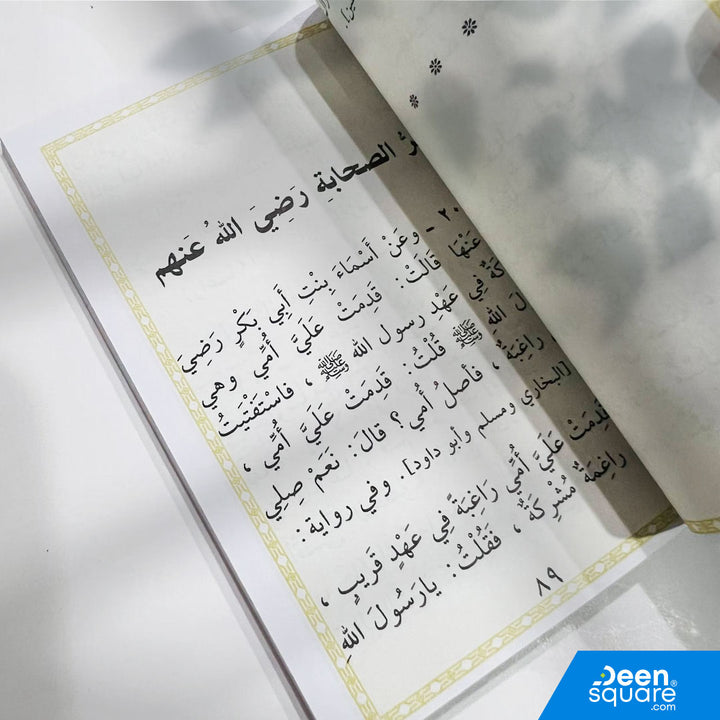 الصحابةِ رَضِيَ اللهُ عَنهم
٢٠ - وعَنْ أَسْمَاءَ بِنْتِ أَبِي بَكْرٍ رَضِيَ
عَنْهَا قَالَتْ: قَدِمَتْ عَلَيَّ أُمِّي وهي
فِي عَهْدِ رسول الله ﷺ ، فاسْتَفْتَيْتُ
اللهِ ﷺ قُلْتُ: قَدِمَتْ عَلَيَّ أُمِّي ،
رَاغِبَةٌ ، فأصلُ أُمي؟ قالَ: نَعَمْ صِلِي
[البخاري ومسلم وأبو داود]. وفي رواية:
قَدِمَتْ عَلَيَّ أُمِّي رَاغِبَةً فِي عَهْدٍ قَرِيبٍ ،
رَاغِمَةٌ مُشْرِكَةٌ ، فَقُلْتُ: يارَسُولَ اللهِ
٨٩
Deen
square®
.com